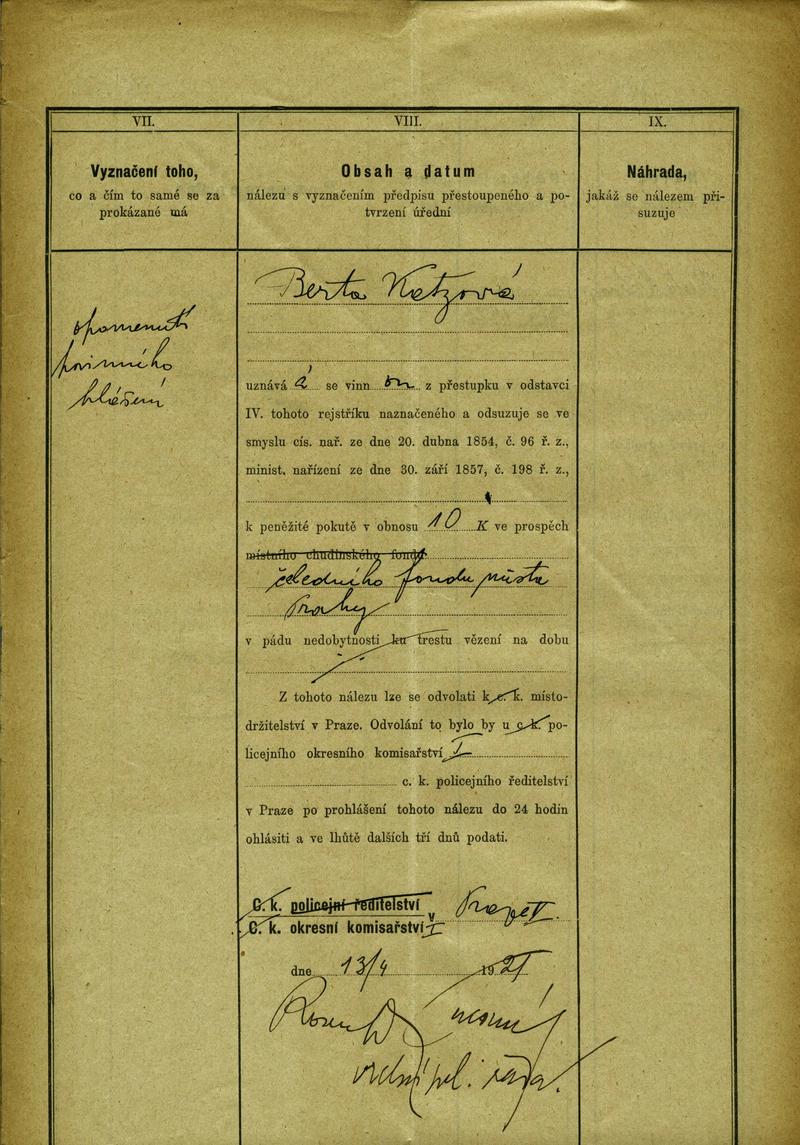 VII.
VIII.
IX.
Vyznačení toho,
co a čím to samé se za
prokázané má
Obsah a datum
nálezu s vyznačením předpisu přestoupeného a po-
tvrzení úřední
Náhrada,
jakáž se nálezem při-
suzuje
opomenutí
povinného
hlášení
Berta Ketzová
uznává á se vinn ou z přestupku v odstavci
IV. tohoto rejstříku naznačeného a odsuzuje se ve
smyslu cís. nař. ze dne 20. dubna 1854, č. 96 ř. z.,
minist. nařízení ze dne 30. září 1857, č. 198 ř. z.,
k peněžité pokutě v obnosu 10 K ve prospěch
místního chudinského fondu
čeledního fondu města
Prahy
v pádu nedobytnosti ku trestu vězení na dobu
Z tohoto nálezu lze se odvolati k c. k. místo-
držitelství v Praze. Odvolání to bylo by u c. k. po-
licejního okresního komisařství I
c. k. policejního ředitelství
v Praze po prohlášení tohoto nálezu do 24 hodin
ohlásiti a ve lhůtě dalších tří dnů podati.
C. k. policejní ředitelství
C. k. okresní komisařství I v Praze
dne 13/4 1921
vrchní pol. rada.